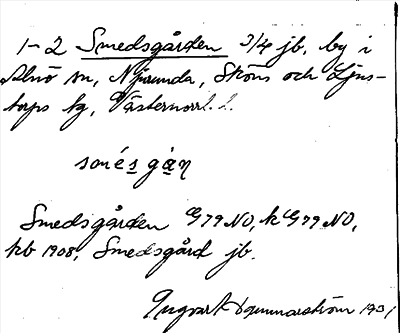 1-2 Smedsgården 3/4 jb, by i
Alnö sn, Njurunda, Sköns och Ljus-
torps tg, Västernorrl. l.
smésgɑn
Smedsgården G79 NO, k G79 NO,
kb 1908, Smedsgård jb.
Ingvar 1931